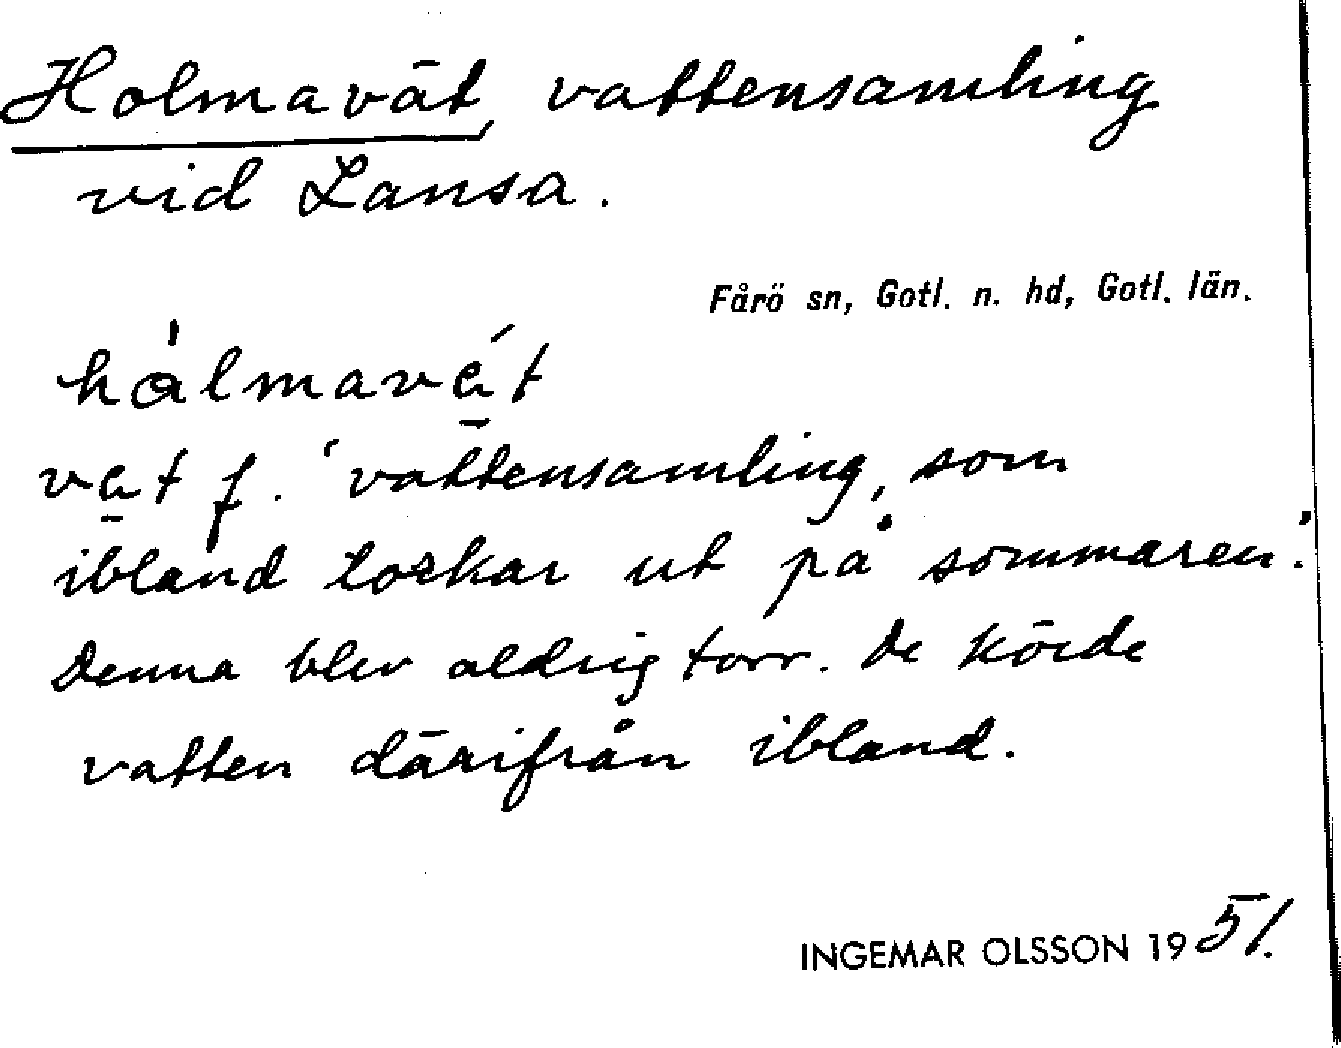 Holmavät, vattensamling
vid Lansa.
Fårö sn, Gotl. n. hd, Gotl. län.
hålmavét
vet f. 'vattensamling, som
ibland torkar ut på sommaren'.
Denna blev aldrig torr. De körde
vatten därifrån ibland.
INGEMAR OLSSON 1951.